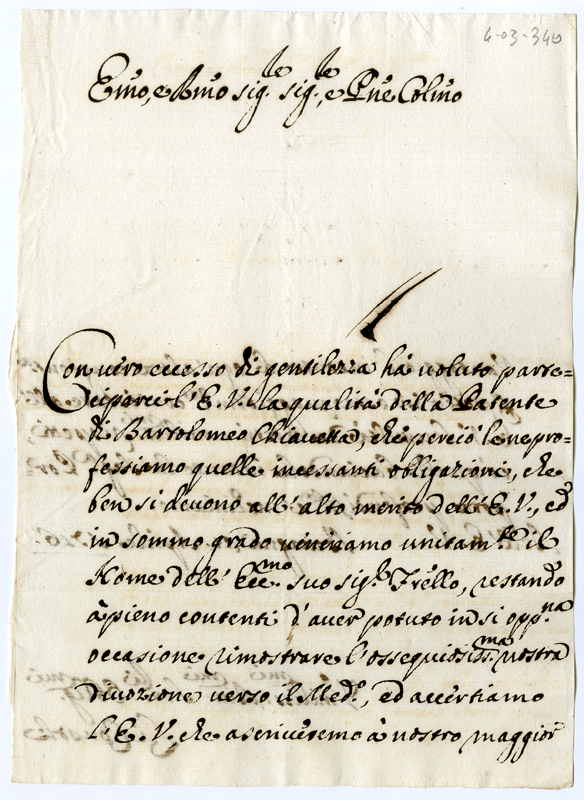 4-03-340
Emo, e Rmo sig.re sig.re, e Pñe Colmo
Con vero eccesso di gentilezza hà voluto parte=
ciparci l'E. V. la qualità della Patente
di Bartolomeo Chiavetta, che perciò le ne pro=
fessiamo quelle incessanti obligazioni, che
ben si devono all'alto merito dell'E. V., ed
in sommo grado veneriamo unitam.te il
Nome dell' Ecc.mo suo sig.r Frello, restando
à pieno contenti d'aver potuto in sì opp.na
occasione rimostrare l'ossequiosiss.ma nostra
divozione verso il Med.o, ed accertiamo
l'E. V., che ascriveremo à nostro maggior